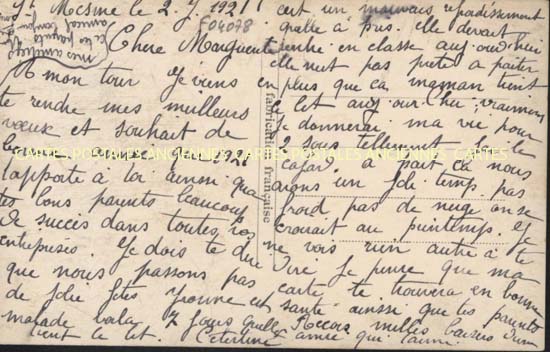 St Mesme le 2. J 1921
F04078
Chère Marguerite
A mon tour Je viens
te rendre mes meilleurs
vœux et souhait de
1921
t'apporte à toi ainsi qua
tes bons parents beaucoup
de succès dans toutes vos
entreprises. Je dois te dire
que nous passons pas
de Jolie fêtes Yvonne est
malade voila 7 Jours quelle
tient le lit.
cest un mauvais refroidissement
elle devait
rentre en classe aujourdhui
elle nest pas prete a
en plus que ca maman tient
le lit aujourhui vraiment
Je donnerai ma vie pour
2 sous tellement Jai le
cafard. a part ca nous
avons un Joli temps pas
froid, pas de neige on se
croirait au printemps. Je
ne vois rien autre à te
dire Je pense que ma
carte te trouvera en bonne
santé ainsi que tes parents
Recois milles baisers d'une
amie que t'aime
mes amitiés
fabrication française
CARTES POSTALES ANCIENNES CARTES POSTALES ANCIENNES CARTES